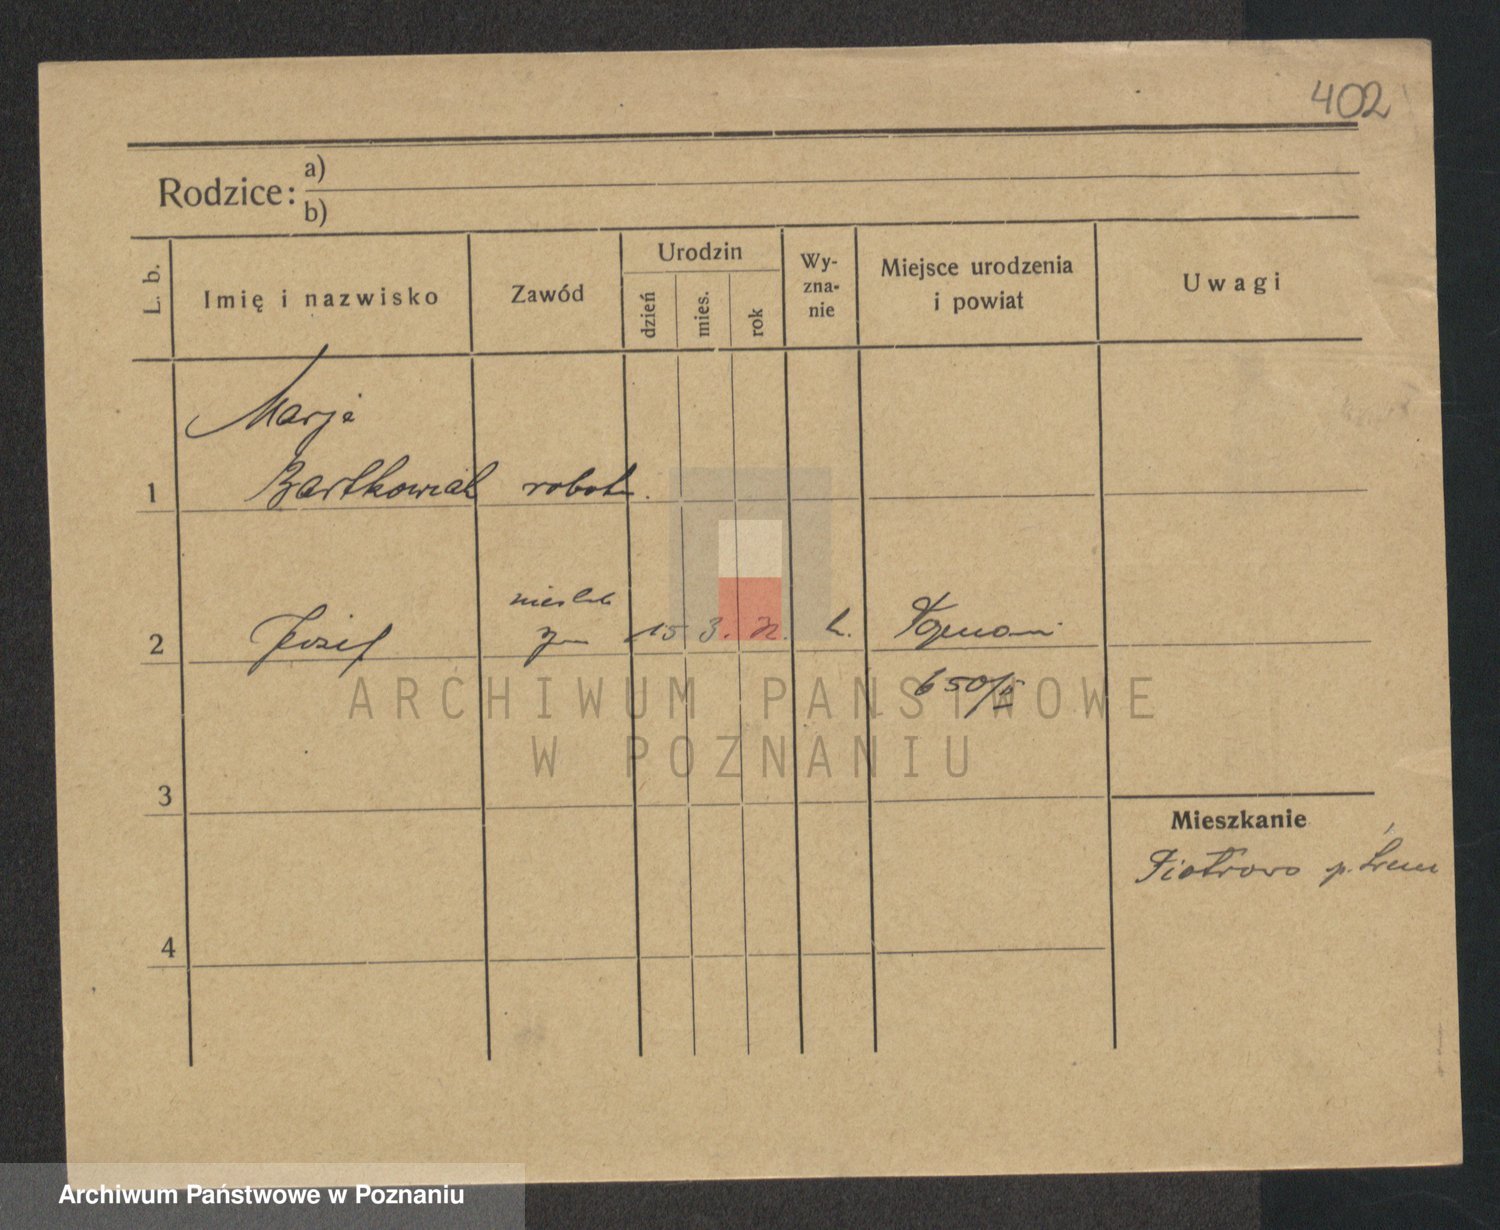 402
Rodzice: a)
b)
L. b.
Imię i nazwisko
Zawód
Urodzin
dzień
mies.
rok
Wy-
zna-
nie
Miejsce urodzenia
i powiat
Uwagi
Marja
1 Bartkowiak robotn.
2 Józef 15 3. k. Poznań
650/II
3
4
Mieszkanie
Piotrowo p. Śrem
ARCHIWUM PAŃSTWOWE
W POZNANIU
Archiwum Państwowe w Poznaniu